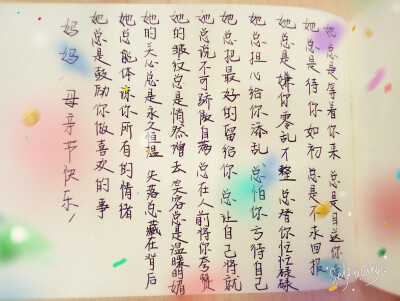 她总是等着你来 总是目送你
她总是待你如初 总是不求回报
她总是嫌你零乱不整 总替你忙忙碌碌
她总担心给你添乱 总怕你亏待自己
她总把最好的留给你 总让自己将就
她总说不可骄傲自满 总在人前将你夸赞
她的皱纹总是悄然增去 笑容总是温暖明媚
她的关心总是永远恒温 失落总藏在背后
她总能体谅你所有的情绪
她总是鼓励你做喜欢的事
妈妈 母亲节快乐！